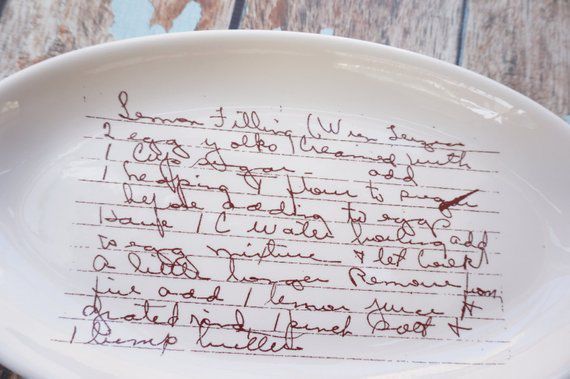 Lemon Filling (
2 egg yolks, creamed with
1 Cup sugar - add
1 heaping T flour to sugar
before adding to eggs
Have 1 C water boiling add
to egg mixture & let cook
a little longer Remove from
fire add 1 lemon juice &
grated rind, 1 pinch salt &
1 lump butter